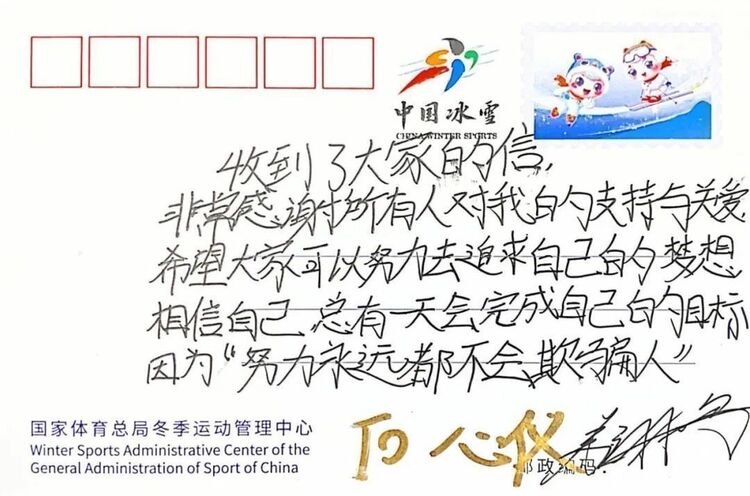 中国冰雪
CHINA WINTER SPORTS
收到了大家的信,
非常感谢所有人对我的支持与关爱
希望大家可以努力去追求自己的梦想
相信自己.总有一天会完成自己的目标
因为“努力永远都不会欺骗人”
TO 心仪
国家体育总局冬季运动管理中心
Winter Sports Administrative Center of the
General Administration of Sport of China
邮政编码: